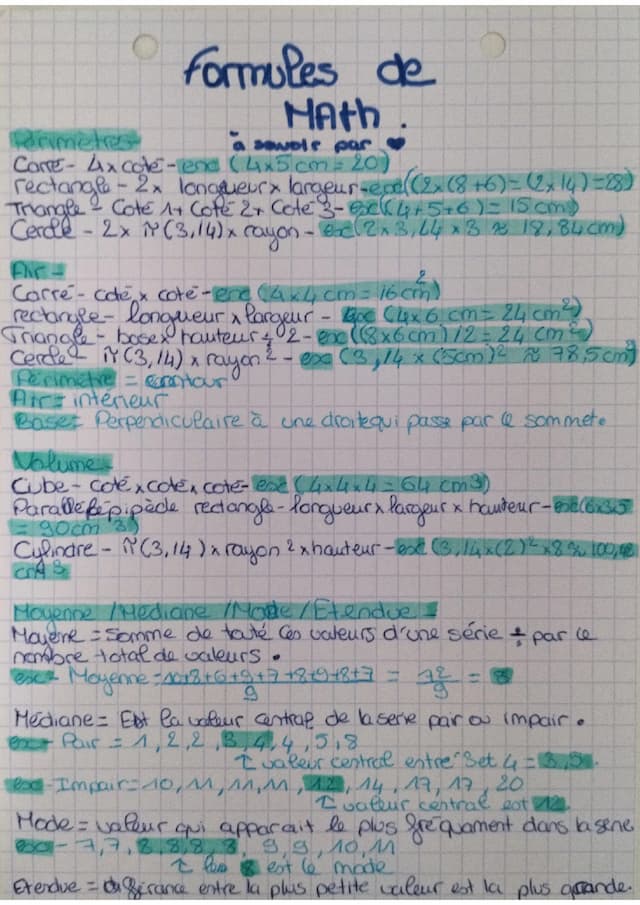 formules de
MAth.
à savoir par ♥
Périmètres
Carré - 4 x coté - exe (4x5cm = 20)
rectangle - 2x longueur x largeur - exe ((2x(8+6) = (2x14) = 28)
Triangle - Coté 1 + Coté 2 + Coté 3 - exe ((4+5+6) = 15 cm)
Cercle - 2x π (3,14) x rayon - exe (2x3,14 x 3 ≈ 18,84cm)
Air -
Carré - coté x coté - exe (4x4cm = 16cm²)
rectangle - longueur x largeur - exe (4x6 cm = 24 cm²)
Triangle - base x hauteur ÷ 2 - exe ((8x6cm) / 2 = 24 cm²)
Cercle - π (3,14) x rayon² - exe (3,14 x (5cm)² ≈ 78,5cm²)
Périmètre = contour
Air = intérieur
Base = Perpendiculaire à une droite qui passe par le sommet.
Volume -
Cube - coté x coté x coté - exe (4x4x4 = 64 cm3)
Parallélépipède rectangle - longueur x largeur x hauteur - exe (6x3x5
= 90cm 3)
Cylindre - π (3,14) x rayon 2 x hauteur - exe (3,14x(2)² x 8 ≈ 100,48
cm 3
Moyenne / Médiane / Mode / Etendue =
Moyene = Somme de touté les valeurs d'une série ÷ par le
nombre total de valeurs.
exe - Moyenne = 10+8+6+9+7+8+9+8+7 / 9 = 72 / 9 = 8
Médiane = Est la valeur central de la serie pair ou impair.
exe - Pair = 1, 2, 2, 3, 4, 4, 5, 8
↑ valeur central entre 3 et 4 = 3,5.
exe - Impair = 10, 11, 11, 11, 12, 14, 17, 17, 20
↑ valeur central est 12.
Mode = valeur qui apparait le plus fréquament dans la serie
exe - 7, 7, 8, 8, 8, 8, 9, 9, 10, 11
↑ 8 est le mode
Etendue = différance entre la plus petite valeur est la plus grande.